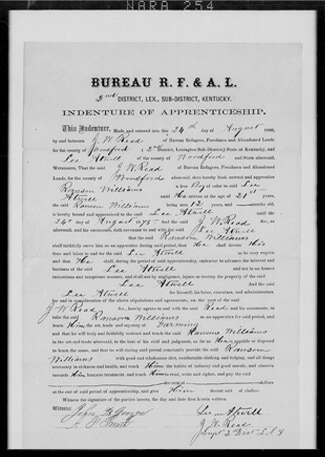 NARA 254
BUREAU R. F. & A. L.
2nd DISTRICT, LEX., SUB-DISTRICT, KENTUCKY.
INDENTURE OF APPRENTICESHIP.
This Indenture, Made and entered into this 24th day of August 186
by and between J W Read of Bureau Refugees, Freedmen and Abandoned Lands
for the county of Woodford (2nd District, Lexington Sub-District) State of Kentucky, and
Lee Atwell of the county of Woodford and State aforesaid,
Witnesseth, That the said J. W. Read of Bureau Refugees, Freedmen and Abandoned
Lands, for the county of Woodford aforesaid, does hereby bind, covenant and apprentice
Ransom Williams a Boy of color to said Lee
Atwell until he arrives at the age of 21st years
the said Ransom Williams being 12 years, and months old,
is hereby bound and apprenticed to the said Lee Atwell until the
24th day of August 1875 and the said J W Read, as
aforesaid, and his successors, doth covenant to and with the said Lee Atwell
that the said Ransom Williams
shall faithfully serve him as an apprentice during said period, that He shall devote His
time and labor to the said Lee Atwell and obey
and that He shall during the period of said apprenticeship, endeavor to advance the interest and
business of the said Lee Atwell and not in an honest
industrious and temperate manner, and shall not by negligence, injure or destroy the property of the said
Lee Atwell And the said
Lee Atwell for himself, his heirs, executors, and administrators,
for and in consideration of the above stipulations and agreements, on the part of the said
J W Read hereby agrees to and with Read and his successors, to
take the said Ransom Williams as an apprentice for said period, and
learn Him the art, trade and mystery of Farming
and that he will truly and faithfully instruct and teach the said Ransom Williams
in the art and trade aforesaid, to the best of his skill and judgment, so far as He capable or disposed
to learn the same, and that he will during said period constantly provide the said Ransom
Williams with good and wholesome diet, comfortable clothing and lodging, and all things
necessary in sickness and health, and teach Him the habits of industry and good morals, and observe
towards Him humane treatment, and teach Him to read, write and cipher, and pay the said
the sum of dollars
at the end of said period of apprenticeship, and give Him decent suit of clothes.
In witness of the parties hereunto, the day and date first herein written.
Witness:
Lee Atwell
J W Read